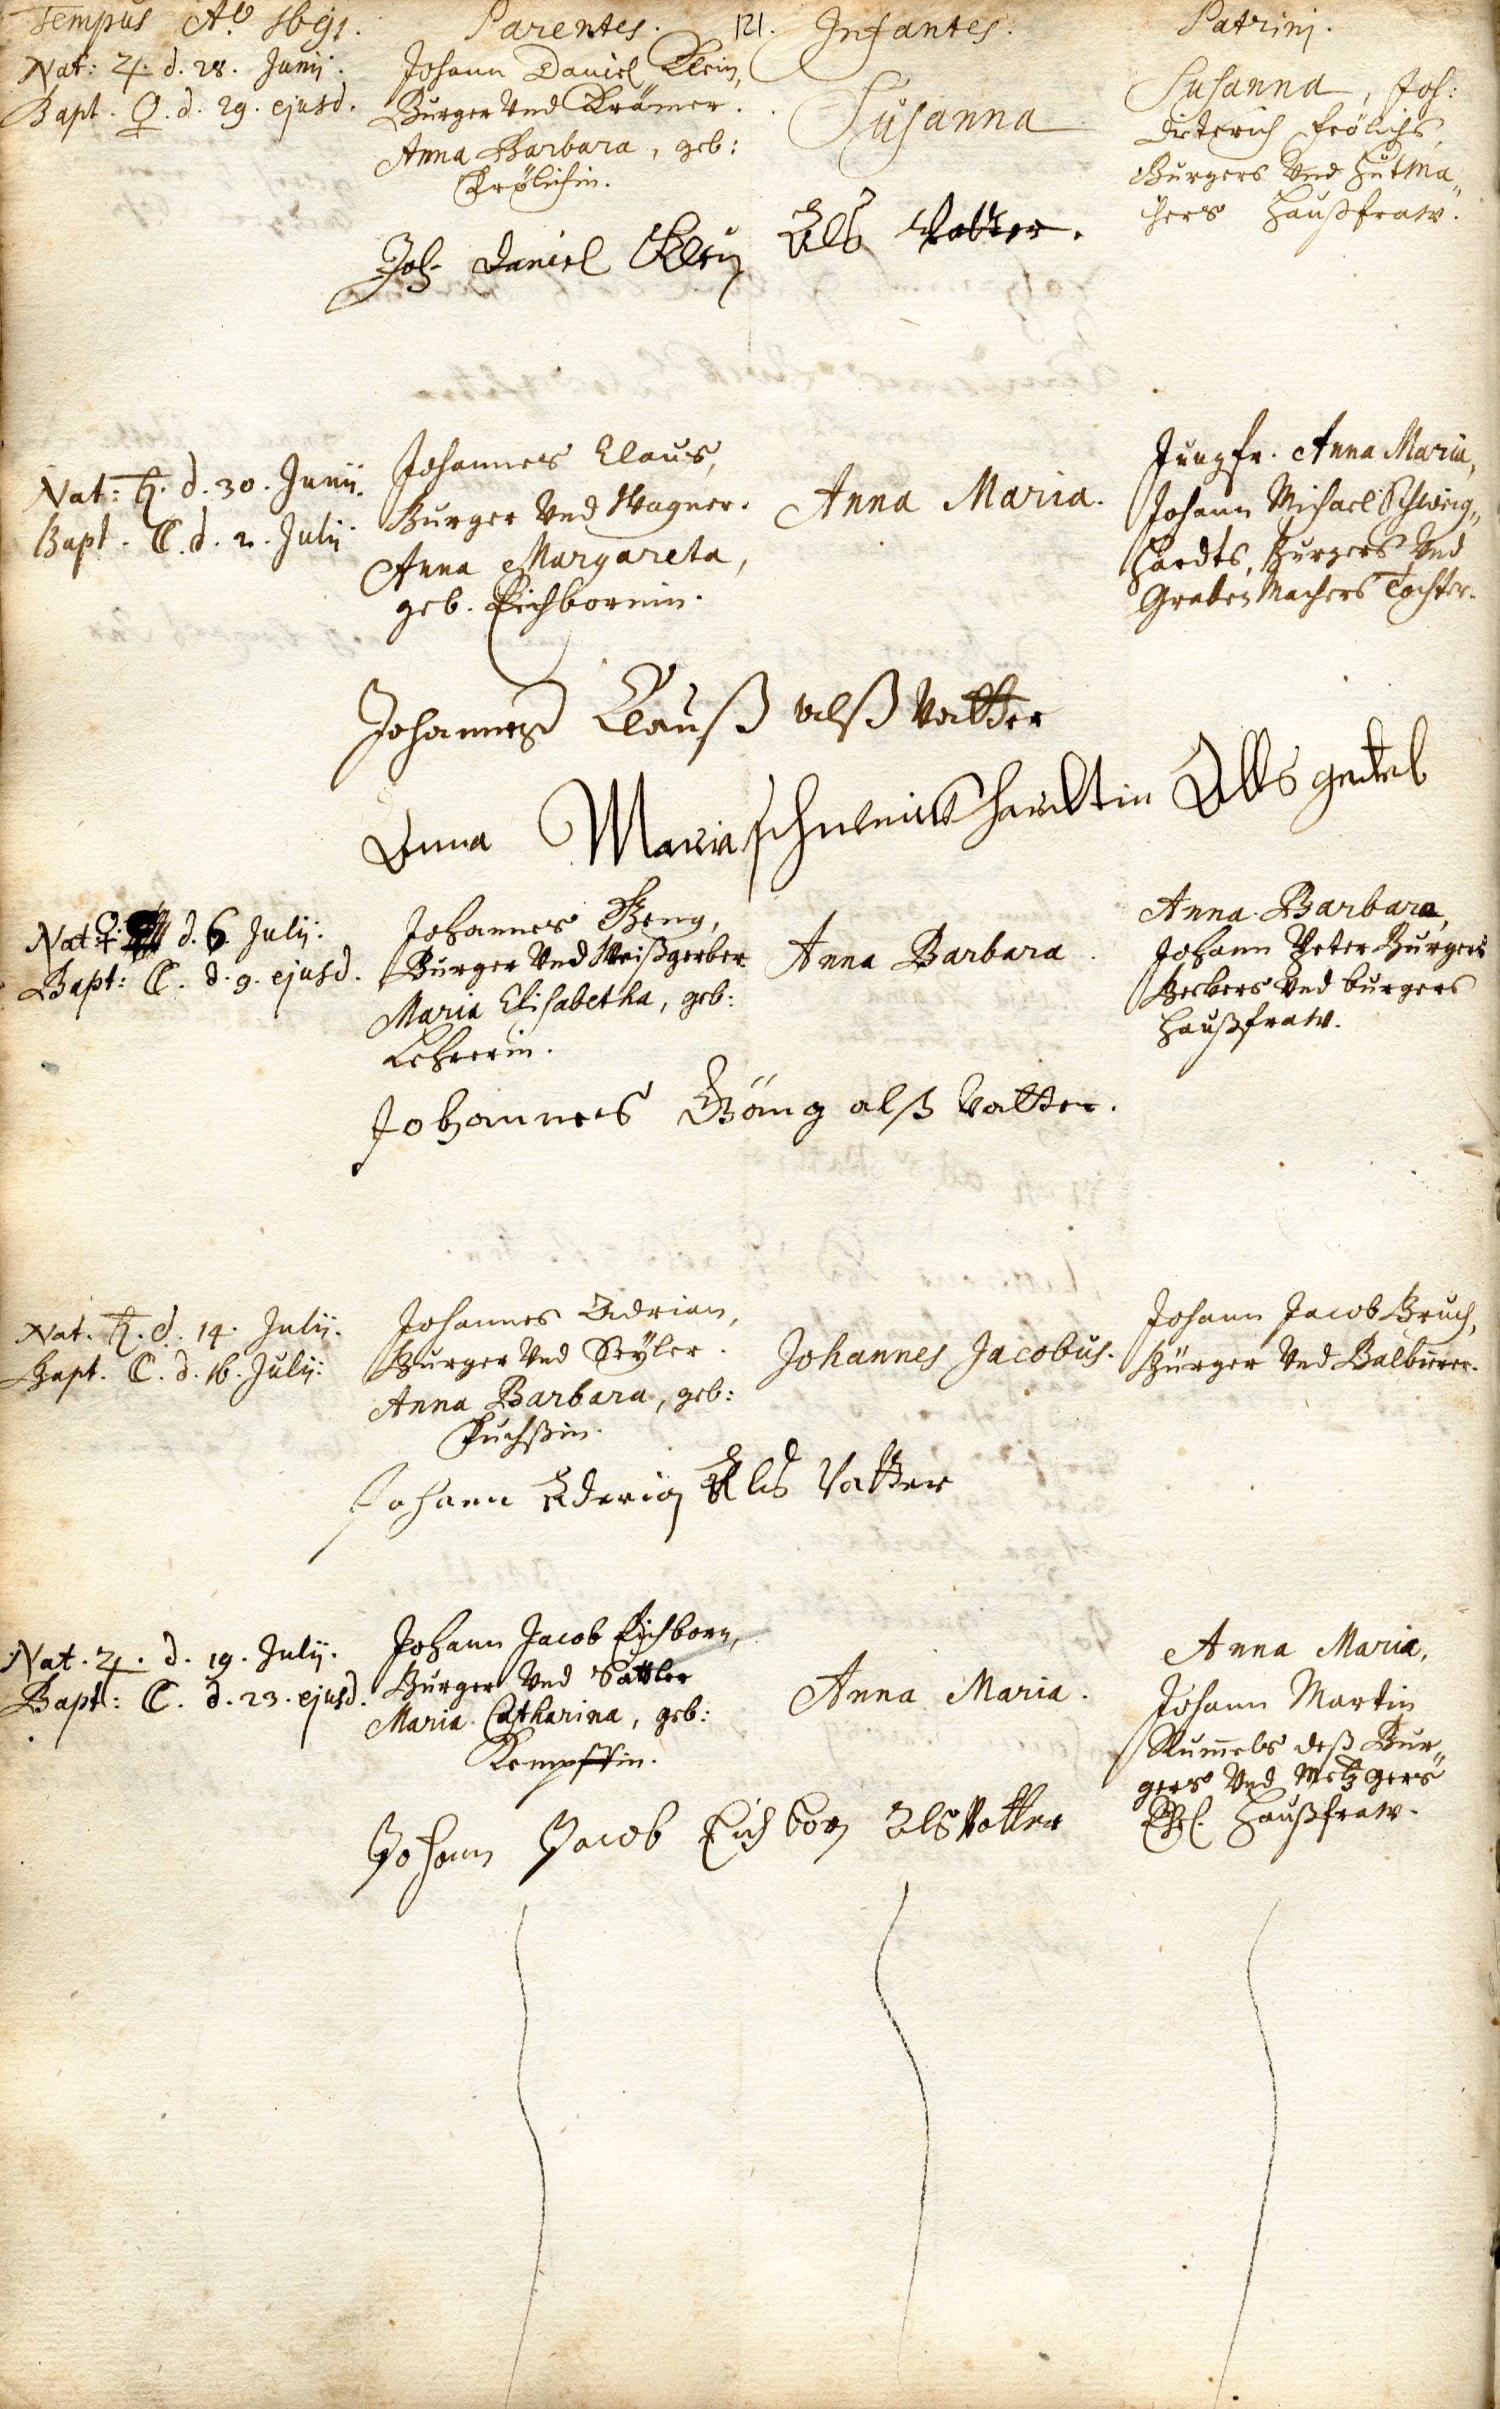 Tempus Aº 1691. Parentes. 121. Infantes. Patrinj.
Nat: ♃. d. 28. Junij.
Bapt. ♀. d. 29. ejusd.
Johann Daniel Klein,
Burger Und Krämer.
Anna Barbara, geb:
Frölichin.
Susanna
Susanna, Joh:
Dieterich Frölichs,
Burgers Und Hutma„
chers Haußfraw.
Joh Daniel Klein Als Vatter.
Nat: ♄. d. 30. Junij.
Bapt. ☾. d. 2. Julij
Johannes Claus,
Burger Und Wagner.
Anna Margareta,
geb. Eichbornin.
Anna Maria.
Jungfr. Anna Maria,
Johann Michael Schweig„
hardts, Burgers Und
Graben Machers Tochter.
Johannes Clauß alß Vatter
Anna Maria schweick hardtin Alls gedel
Nat: ♀. d. 6. Julij.
Bapt: ☾. d. 9. ejusd.
Johannes Beng,
Burger Und Weißgerber
Maria Elisabetha, geb:
Lehrerin.
Anna Barbara.
Anna Barbara,
Johann Peter Burgers
Beckers Und burgers
Haußfraw.
Johannes Bäng alß Vatter.
Nat. ♄. d. 14. Julij.
Bapt. ☾. d. 16. Julij:
Johannes Adrian,
Burger Und Seyler.
Anna Barbara, geb:
Fuchßin.
Johannes Jacobus.
Johann Jacob Bruch,
Bürger Und Balbierer.
Johann Aderian Als Vatter
Nat. ♃. d. 19. Julij.
Bapt: ☾. d. 23. ejusd.
Johann Jacob Eichborn,
Burger Und Sattler
Maria Catharina, geb:
Kempffin.
Anna Maria.
Anna Maria,
Johann Martin
Rum̄els deß Bur„
gers Und Metzgers
Ehl. Haußfraw.
Johann Jacob Eichborn Als Vatter